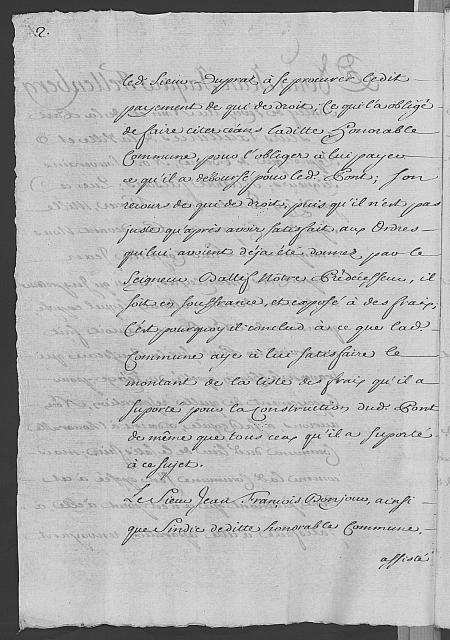 2.
led: Sieur Duprat, à se procurer ledit
payement de qui de droit; Ce qui l'a obligé
de faire citer céans laditte Honorable
Commune, pour l'obliger à lui payer
ce qu'il a deboursé pour led: Pont; Son
recours de qui de droit, puis qu'il n'est pas
juste qu'après avoir satisfait aux Ordres
qui lui avoient déja été donnez par le
Seigneur Ballif Notre Prédécesseur, il
soit en souffrance, et exposé à des fraix;
C'est pourquoy il conclud à ce que lad:
Commune aye à lui satisfaire le
montant de la liste des fraix qu'il a
suporté pour la construction dud: Pont
de même que tous ceux qu'il a suporté
à ce sujet.
Le Sieur Jean François Bonjour, ainsi
que Sindic de ditte honorable Commune,
assisté